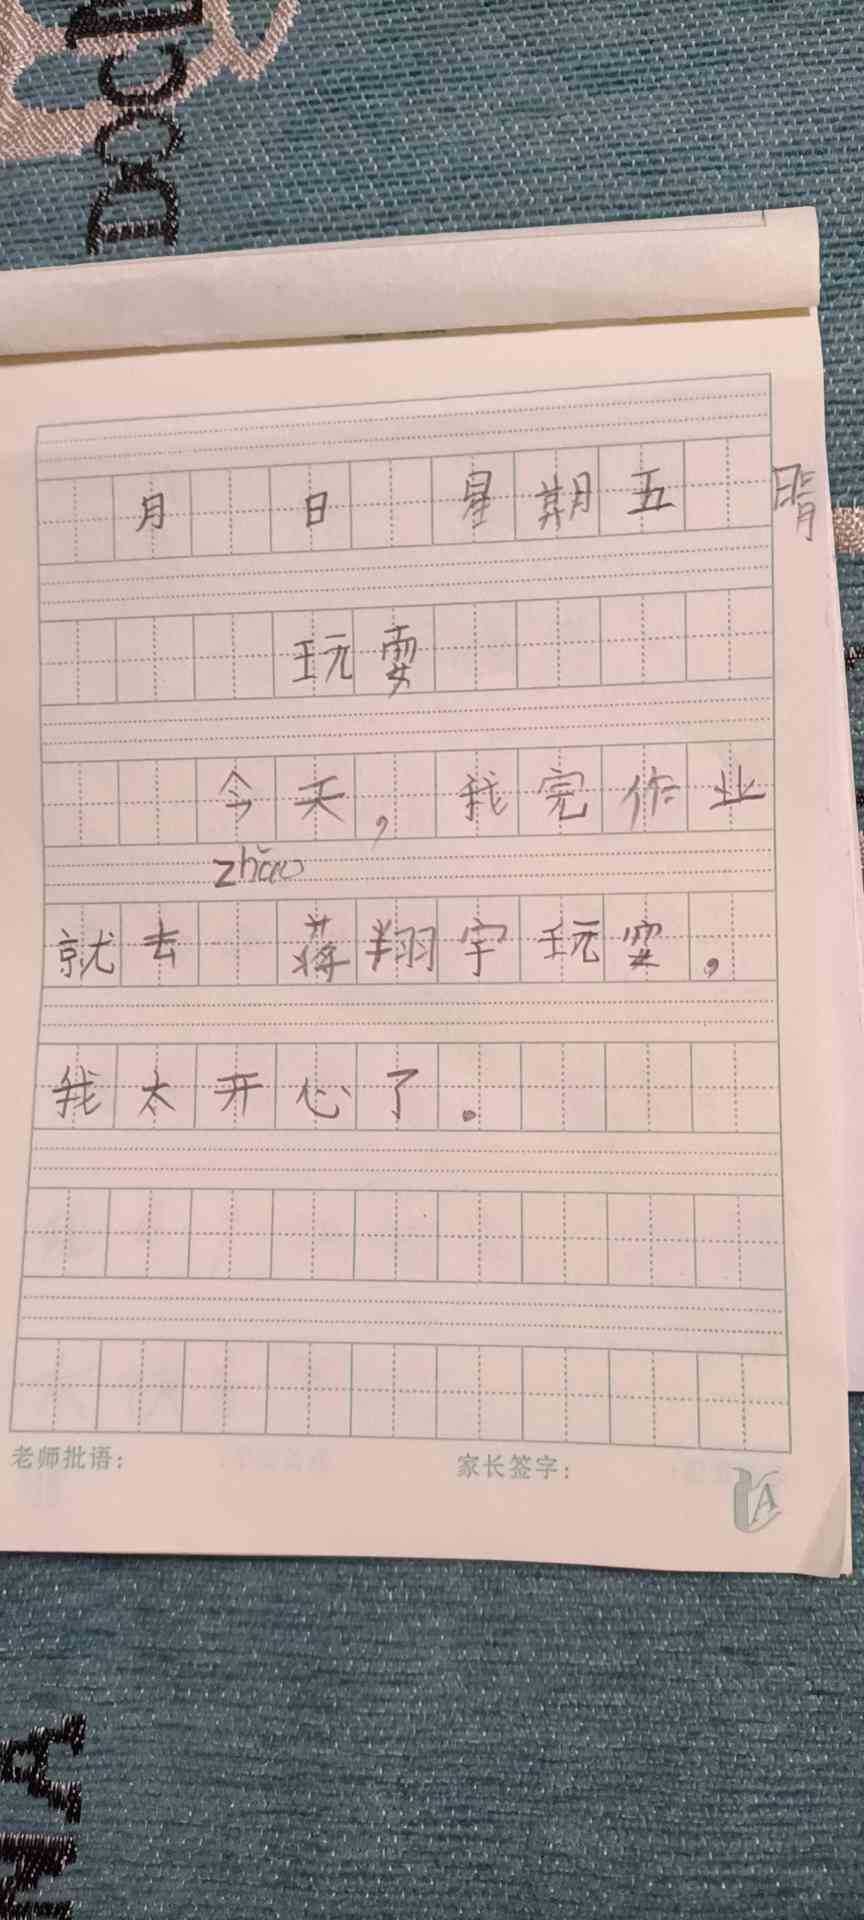 DOCI
月 日 星期五 晴
玩耍
今天，我完作业
zhǎo
就去 蒋翔宇玩耍，
我太开心了。
老师批语： 家长签字：
A